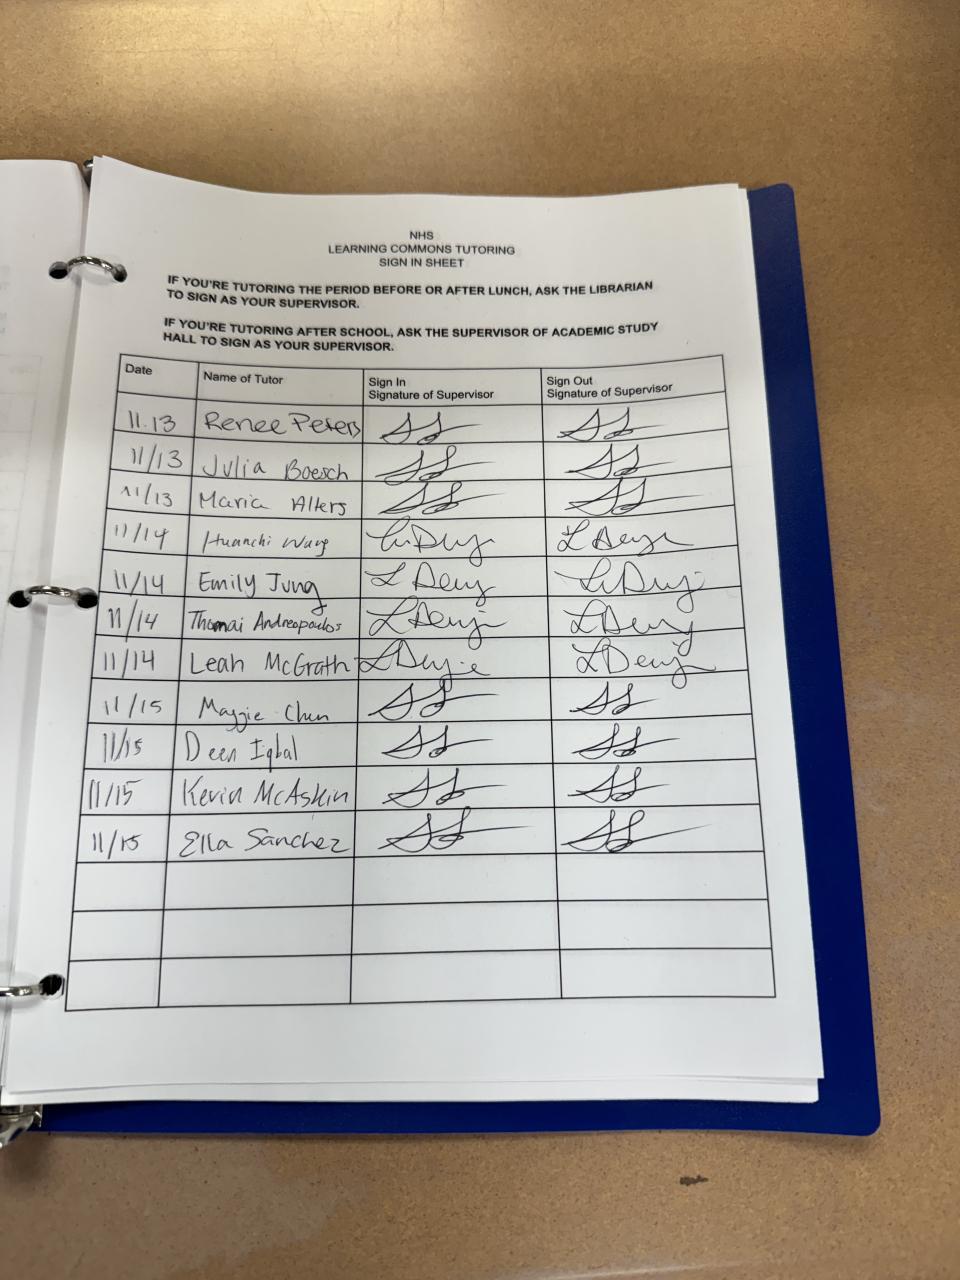 NHS
LEARNING COMMONS TUTORING
SIGN IN SHEET
IF YOU'RE TUTORING THE PERIOD BEFORE OR AFTER LUNCH, ASK THE LIBRARIAN
TO SIGN AS YOUR SUPERVISOR.
IF YOU'RE TUTORING AFTER SCHOOL, ASK THE SUPERVISOR OF ACADEMIC STUDY
HALL TO SIGN AS YOUR SUPERVISOR.
Date Name of Tutor Sign In Sign Out
Signature of Supervisor Signature of Supervisor
11.13 Renee Peters
11/13 Julia Boesch
11/13 Maria Alters
11/14 Huanchi Wang
11/14 Emily Jung
11/14 Thomai Andreopoulos
11/14 Leah McGrath
11/15 Maggie Chen
11/15 Deen Iqbal
11/15 Kevin McAskin
11/15 Ella Sanchez